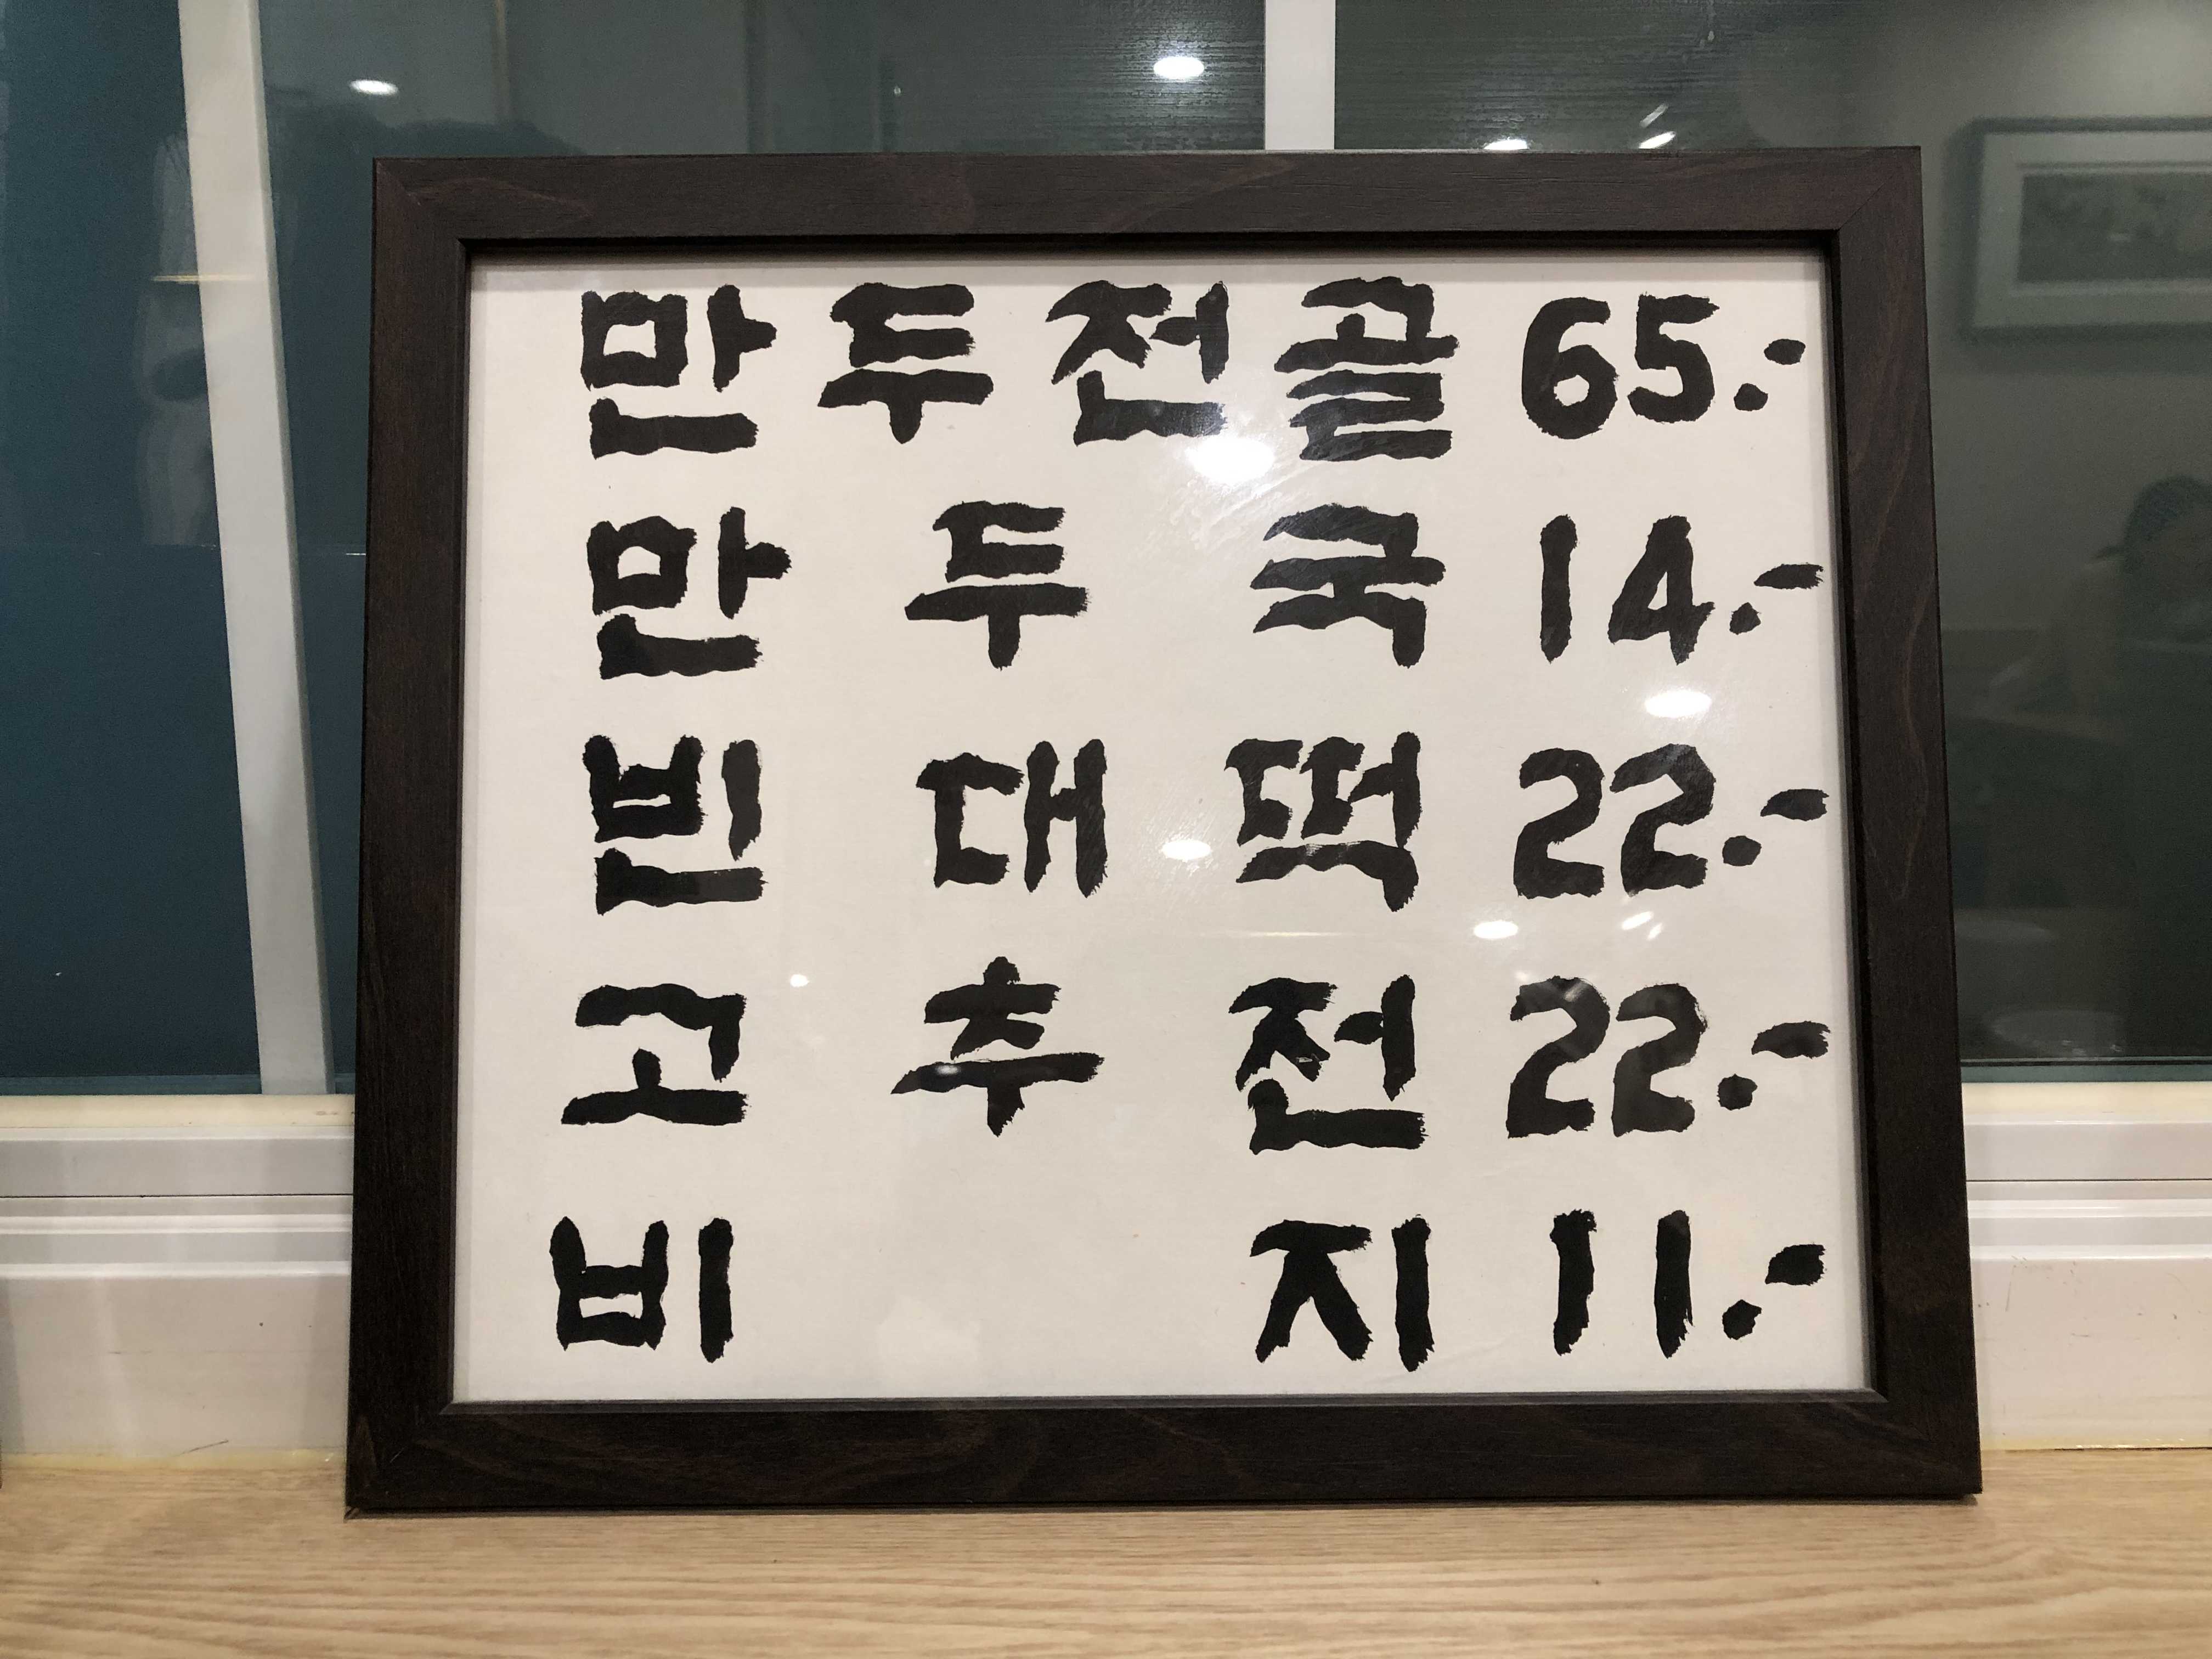 만두전골 65.-
만 두 국 14.-
빈 대 떡 22.-
고 추 전 22.-
비 지 11.-